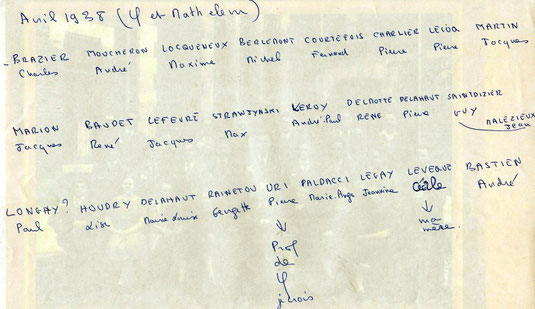 Avril 1938 (φ et Math elem)
- BRAZIER MOUCHERON LOCQUENEUX BERLEMONT COURTEFOIS CHARLIER LECOQ MARTIN
Charles André Maxime Michel Fernand Pierre Pierre Jacques
MARION BAUDET LEFEVRE STRAWJYNSKI LEROY DELMOTTE DELAHAUT SAINTDIZIER
Jacques René Jacques Max André-Paul RENE Pierre GUY MALEZIEUX
Jean
LONGAY? HOUDRY DELAHAUT RAINETOU URI PALDACCI LEGAY LEVEQUE BASTIEN
Paul Lise Marie-Louise Georgette Pierre Marie-Ange Jeannine Cécile André
↓ ↓
Prof ma
de mère.
φ
je crois